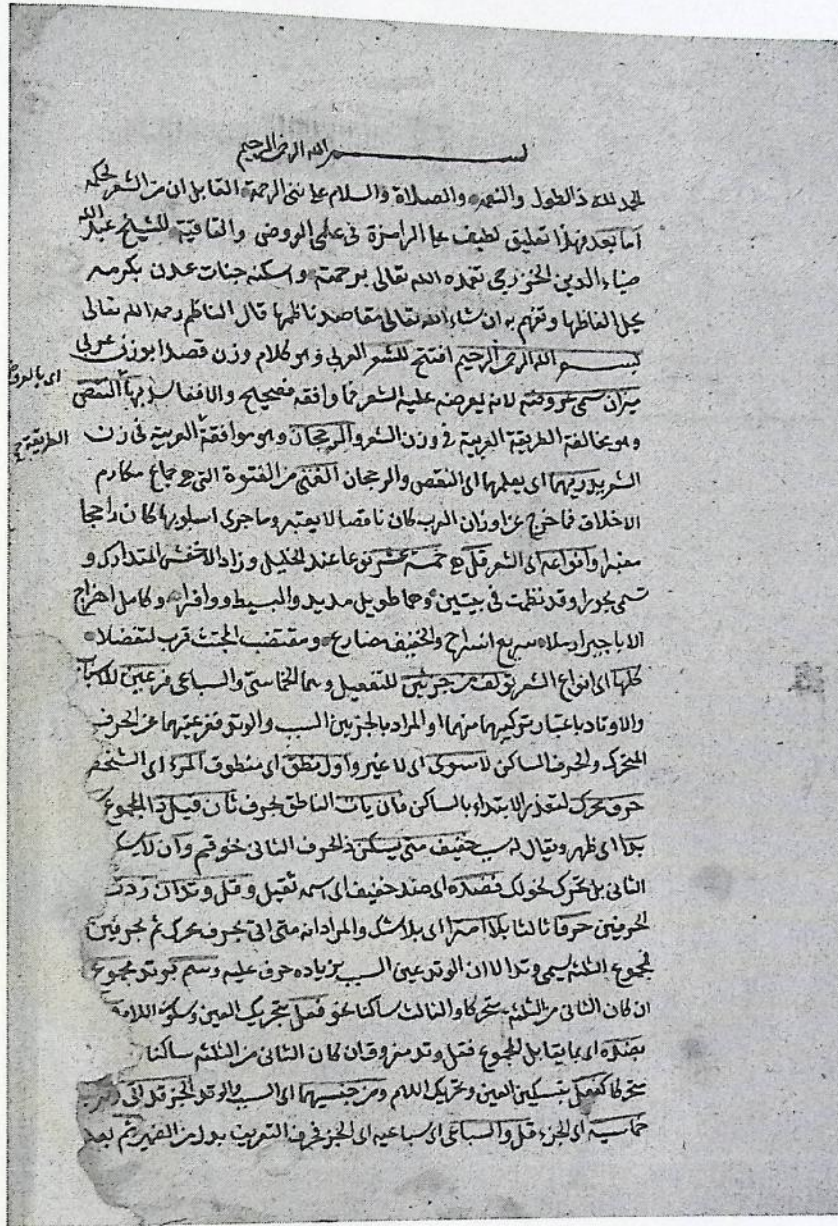 بسم الله الرحمن الرحيم
الحمد لله ذالطول والنعمه والصلاة والسلام على نبى الرحمة القايل ان من الشعر لحكمه
اما بعد فهذا تعليق لطيف على الرامزة فى علمى العروض والقافية للشيخ عبد الله
ضياء الدين الخزرجى تغمده الله تعالى برحمته واسكنه جنات عدن بكرمه
يحل الفاظها وتفهم به ان شاء الله تعالى مقاصد ناظمها قال الناظم رحمه الله تعالى
بسم الله الرحمن الرحيم افتتح للشعر العربى وهو كلام وزن قصدا بوزن عربى
ميزان سمى عروضه لانه يعرضه عليه الشعر فما وافقه فصحيح والا ففاسد بها النقص
اى بالعروض
وهو مخالفة الطريقة العربية فى وزن الشعر والرجحان وهو موافقة العربية فى زن
الطريقة
الشعر يدريهما اى يعلمها اى النقص والرجحان الفتى من الفتوة التى هى جماع مكارم
الاخلاق فما خرج عن اوزان العرب كان ناقصا لا يعتبر وما جرى اسلوبها كان راجحا
معتبرا وانواعه اى الشعر قل هى خمسة عشر نوعا عند الخليل وزاد الاخفش المتدارك و
تسمى بحورا وقد نظمت فى بيتين وهما طويل مديد والبسيط ووافر وكامل اهزاج
الاناجيز ارملا سريع انسراح والخفيف مضارع ومقتضب المجتث قرب لتفضلا
كلها اى انواع الشعر تولف من جزئين للتفعيل وهما الخماسى والسباعى فرعين للاسباب
والاوتاد باعتبار تركيبهما منهما او المراد بالجزئين السبب والوتد وفرعيتهما عن الحرف
المتحرك والحرف الساكن لا سوى اى لا غير واول نطق اى منطوق المرء اى الشخص
حرف محرك لتعذر الابتداء بالساكن فان يات الناطق بحرف ثان قيل ذ المجموع
بدا اى ظهر ويقال له سبب خفيف متى يسكن ذ الحرف الثانى نحو قم وان لا يسكن
الثانى بل تحرك نحو لك فضده اى ضد خفيف اى اسمه ثقيل وقل وتد ان زدت
الحرفين حرفا ثالثا بلا امترا اى بلا شك والمراد انه متى اتى بحرف محرك ثم بحرفين
فمجموع الثلثه يسمى وتدا لا ان الوتد عين السبب بزياده حرف عليه وسم بوتد مجموع
ان كان الثانى من الثلثه متحركا والثالث ساكنا نحو فعل بتحريك العين وسكون اللام
بضده اى بما يقابل المجموع فقل وتد مفروق ان كان الثانى من الثلثه ساكنا
متحركا كفعل بتسكين العين وتحريك اللام ومن جنسيهما اى السبب والوتد الجزء قد اتى
خماسيه اى الجزء قل والسباعى اى سباعيه اى الجزء فحرف التعريف بدل من الضمير ثم بعد